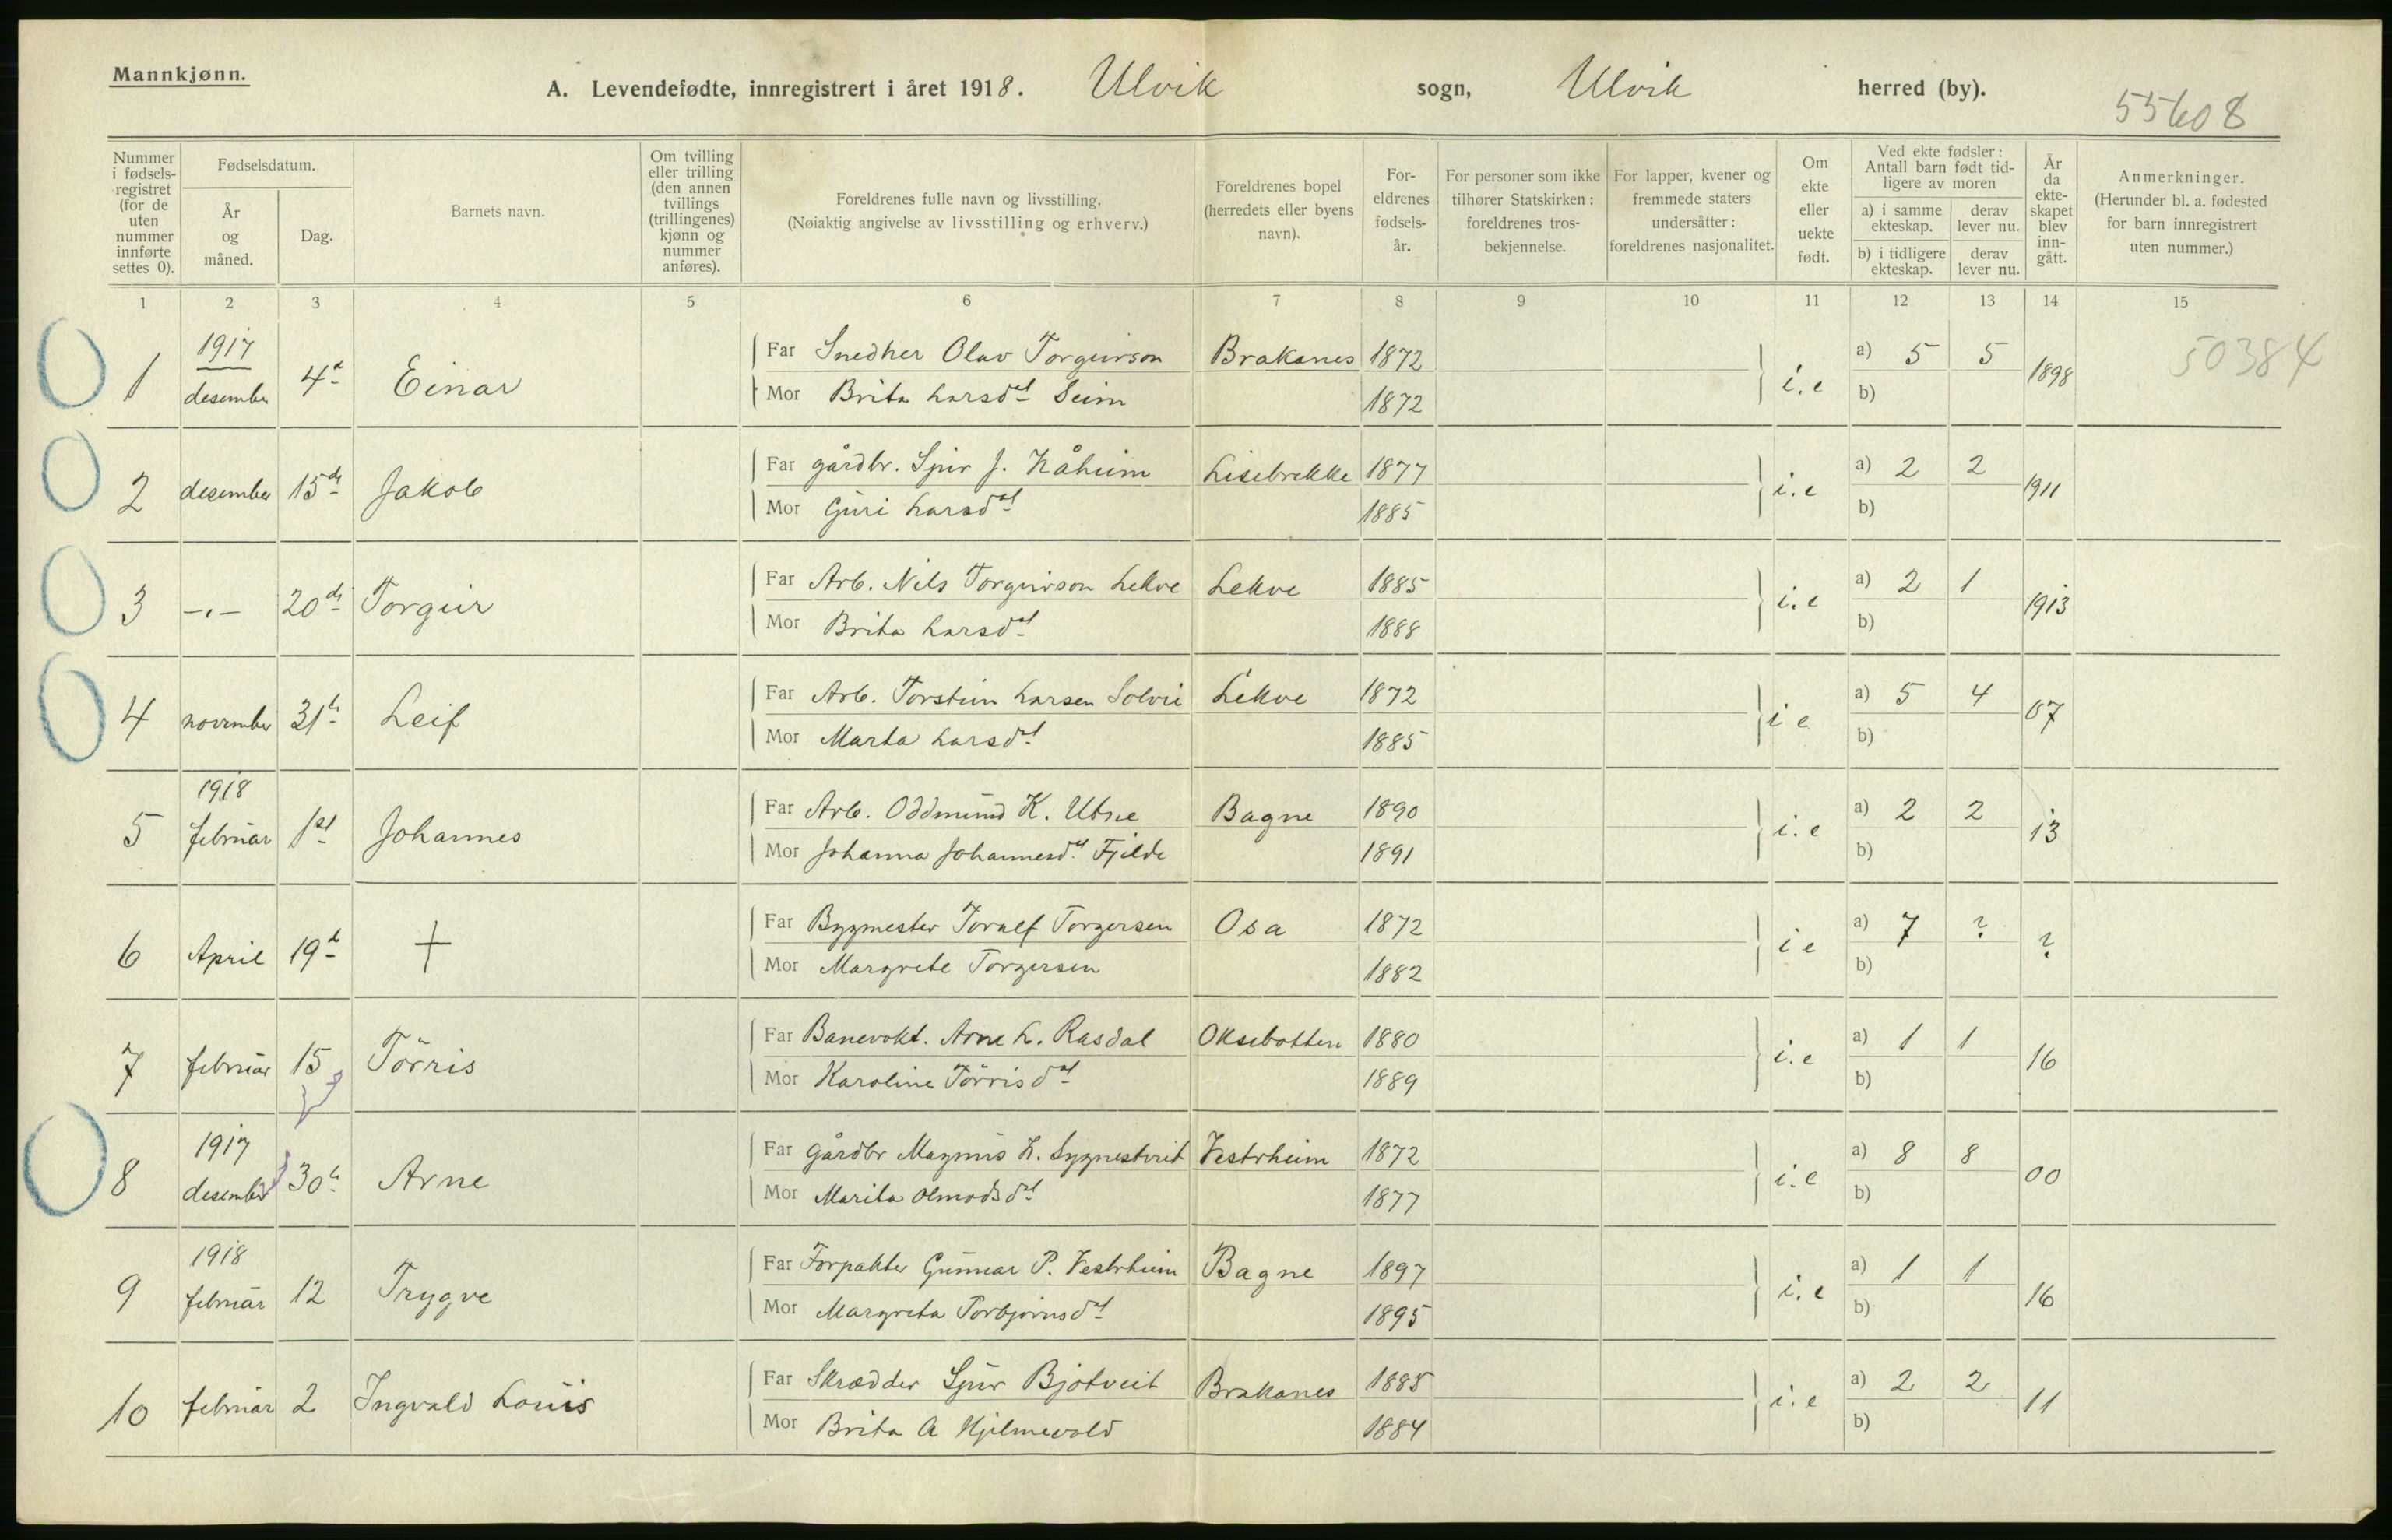 Mannkjønn.
A. Levendefødte, innregistrert i året 1918. Ulvik sogn, Ulvik herred (by).
55608
Nummer i fødselsregistret (for de uten nummer innførte settes 0).
Fødselsdatum.
År og måned.
Dag.
Barnets navn.
Om tvilling eller trilling (den annen tvillings (trillingenes) kjønn og nummer anføres).
Foreldrenes fulle navn og livsstilling.
(Nøiaktig angivelse av livsstilling og erhverv.)
Foreldrenes bopel (herredets eller byens navn).
Foreldrenes fødselsår.
For personer som ikke tilhører Statskirken: foreldrenes trosbekjennelse.
For lapper, kvener og fremmede staters undersåtter: foreldrenes nasjonalitet.
Om ekte eller uekte født.
Ved ekte fødsler: Antall barn født tidligere av moren
a) i samme ekteskap.
derav lever nu.
b) i tidligere ekteskap.
derav lever nu.
År da ekteskapet blev inngått.
Anmerkninger.
(Herunder bl. a. fødested for barn innregistrert uten nummer.)
1 2 3 4 5 6 7 8 9 10 11 12 13 14 15
1 1917 desember 4de Einar
Far Snedker Olav Torgeirson Brakanes 1872 i.e a) 5 5 1898 50384
Mor Brita Larsdat Seim 1872 b)
2 desember 15de Jakob
Far gårdbr. Sjur J. Håheim Lisebrekke 1877 i.e a) 2 2 1911
Mor Guri Larsdat 1885 b)
3 -"- 20de Torgeir
Far Arb. Nils Torgeirson Lekve Lekve 1885 i.e a) 2 1 1913
Mor Brita Larsdat 1888 b)
4 november 31te Leif
Far Arb. Torstein Larsen Lekve 1872 i e a) 5 4 07
Mor Marta Larsdat 1885 b)
5 1918 februar 1ste Johannes
Far Arb. Oddmund K. Utne Bagne 1890 i.e a) 2 2 13
Mor Johanna Johannesdat Fjelde 1891 b)
6 April 19de +
Far Bygmester Toralf Torgersen Osa 1872 i e a) 7 ? ?
Mor Margrete Torgersen 1882 b)
7 februar 15 Törris
Far Banevokt. Arne L. Rasdal Oksebotten 1880 i.e a) 1 1 16
Mor Karoline Törrisdat 1889 b)
8 1917 desember 30te Arne
Far gårdbr Magnus H. Lygnestveit Vestrheim 1872 i.e a) 8 8 00
Mor Marita Olmodsdat 1877 b)
9 1918 februar 12 Trygve
Far Forpakter Gunnar P. Vestrheim Bagne 1897 i.e a) 1 1 16
Mor Margreta Torbjørnsdat 1895 b)
10 februar 2 Ingvald Louis
Far Skrædder Sjur Bjotveit Brakanes 1885 i.e a) 2 2 11
Mor Brita A Hjelmevold 1884 b)